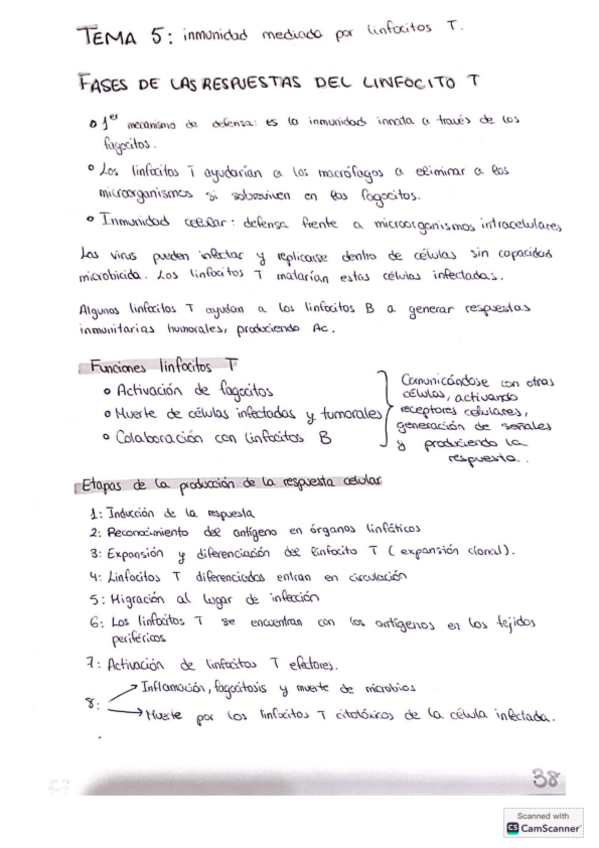 TEMA 5: inmunidad mediada por linfocitos T.
FASES DE LAS RESPUESTAS DEL LINFOCITO T
1er mecanismo de defensa: es la inmunidad innata a través de los
fagocitos.
Los linfocitos T ayudarían a los macrófagos a eliminar a los
microorganismos si sobreviven en los fagocitos.
Inmunidad celular: defensa frente a microorganismos intracelulares
Los virus pueden infectar y replicarse dentro de células sin capacidad
microbicida. Los linfocitos T matarían estas células infectadas.
Algunos linfocitos T ayudan a los linfocitos B a generar respuestas
inmunitarias humorales, produciendo Ac.
Funciones linfocitos T
Activación de fagocitos
Muerte de células infectadas y tumorales
Colaboración con linfocitos B
Comunicándose con otras
células, activando
receptores celulares,
generación de señales
y produciendo la
respuesta.
Etapas de la producción de la respuesta celular
1: Inducción de la respuesta
2: Reconocimiento del antígeno en órganos linfáticos
3: Expansión y diferenciación del linfocito T (expansión clonal).
4: Linfocitos T diferenciados entran en circulación
5: Migración al lugar de infección
6: Los linfocitos T se encuentran con los antígenos en los tejidos
periféricos
7: Activación de linfocitos T efectores.
8: Inflamación, fagocitosis y muerte de microbios
Muerte por los linfocitos T citotóxicos de la célula infectada.
38
Scanned with
CS CamScanner